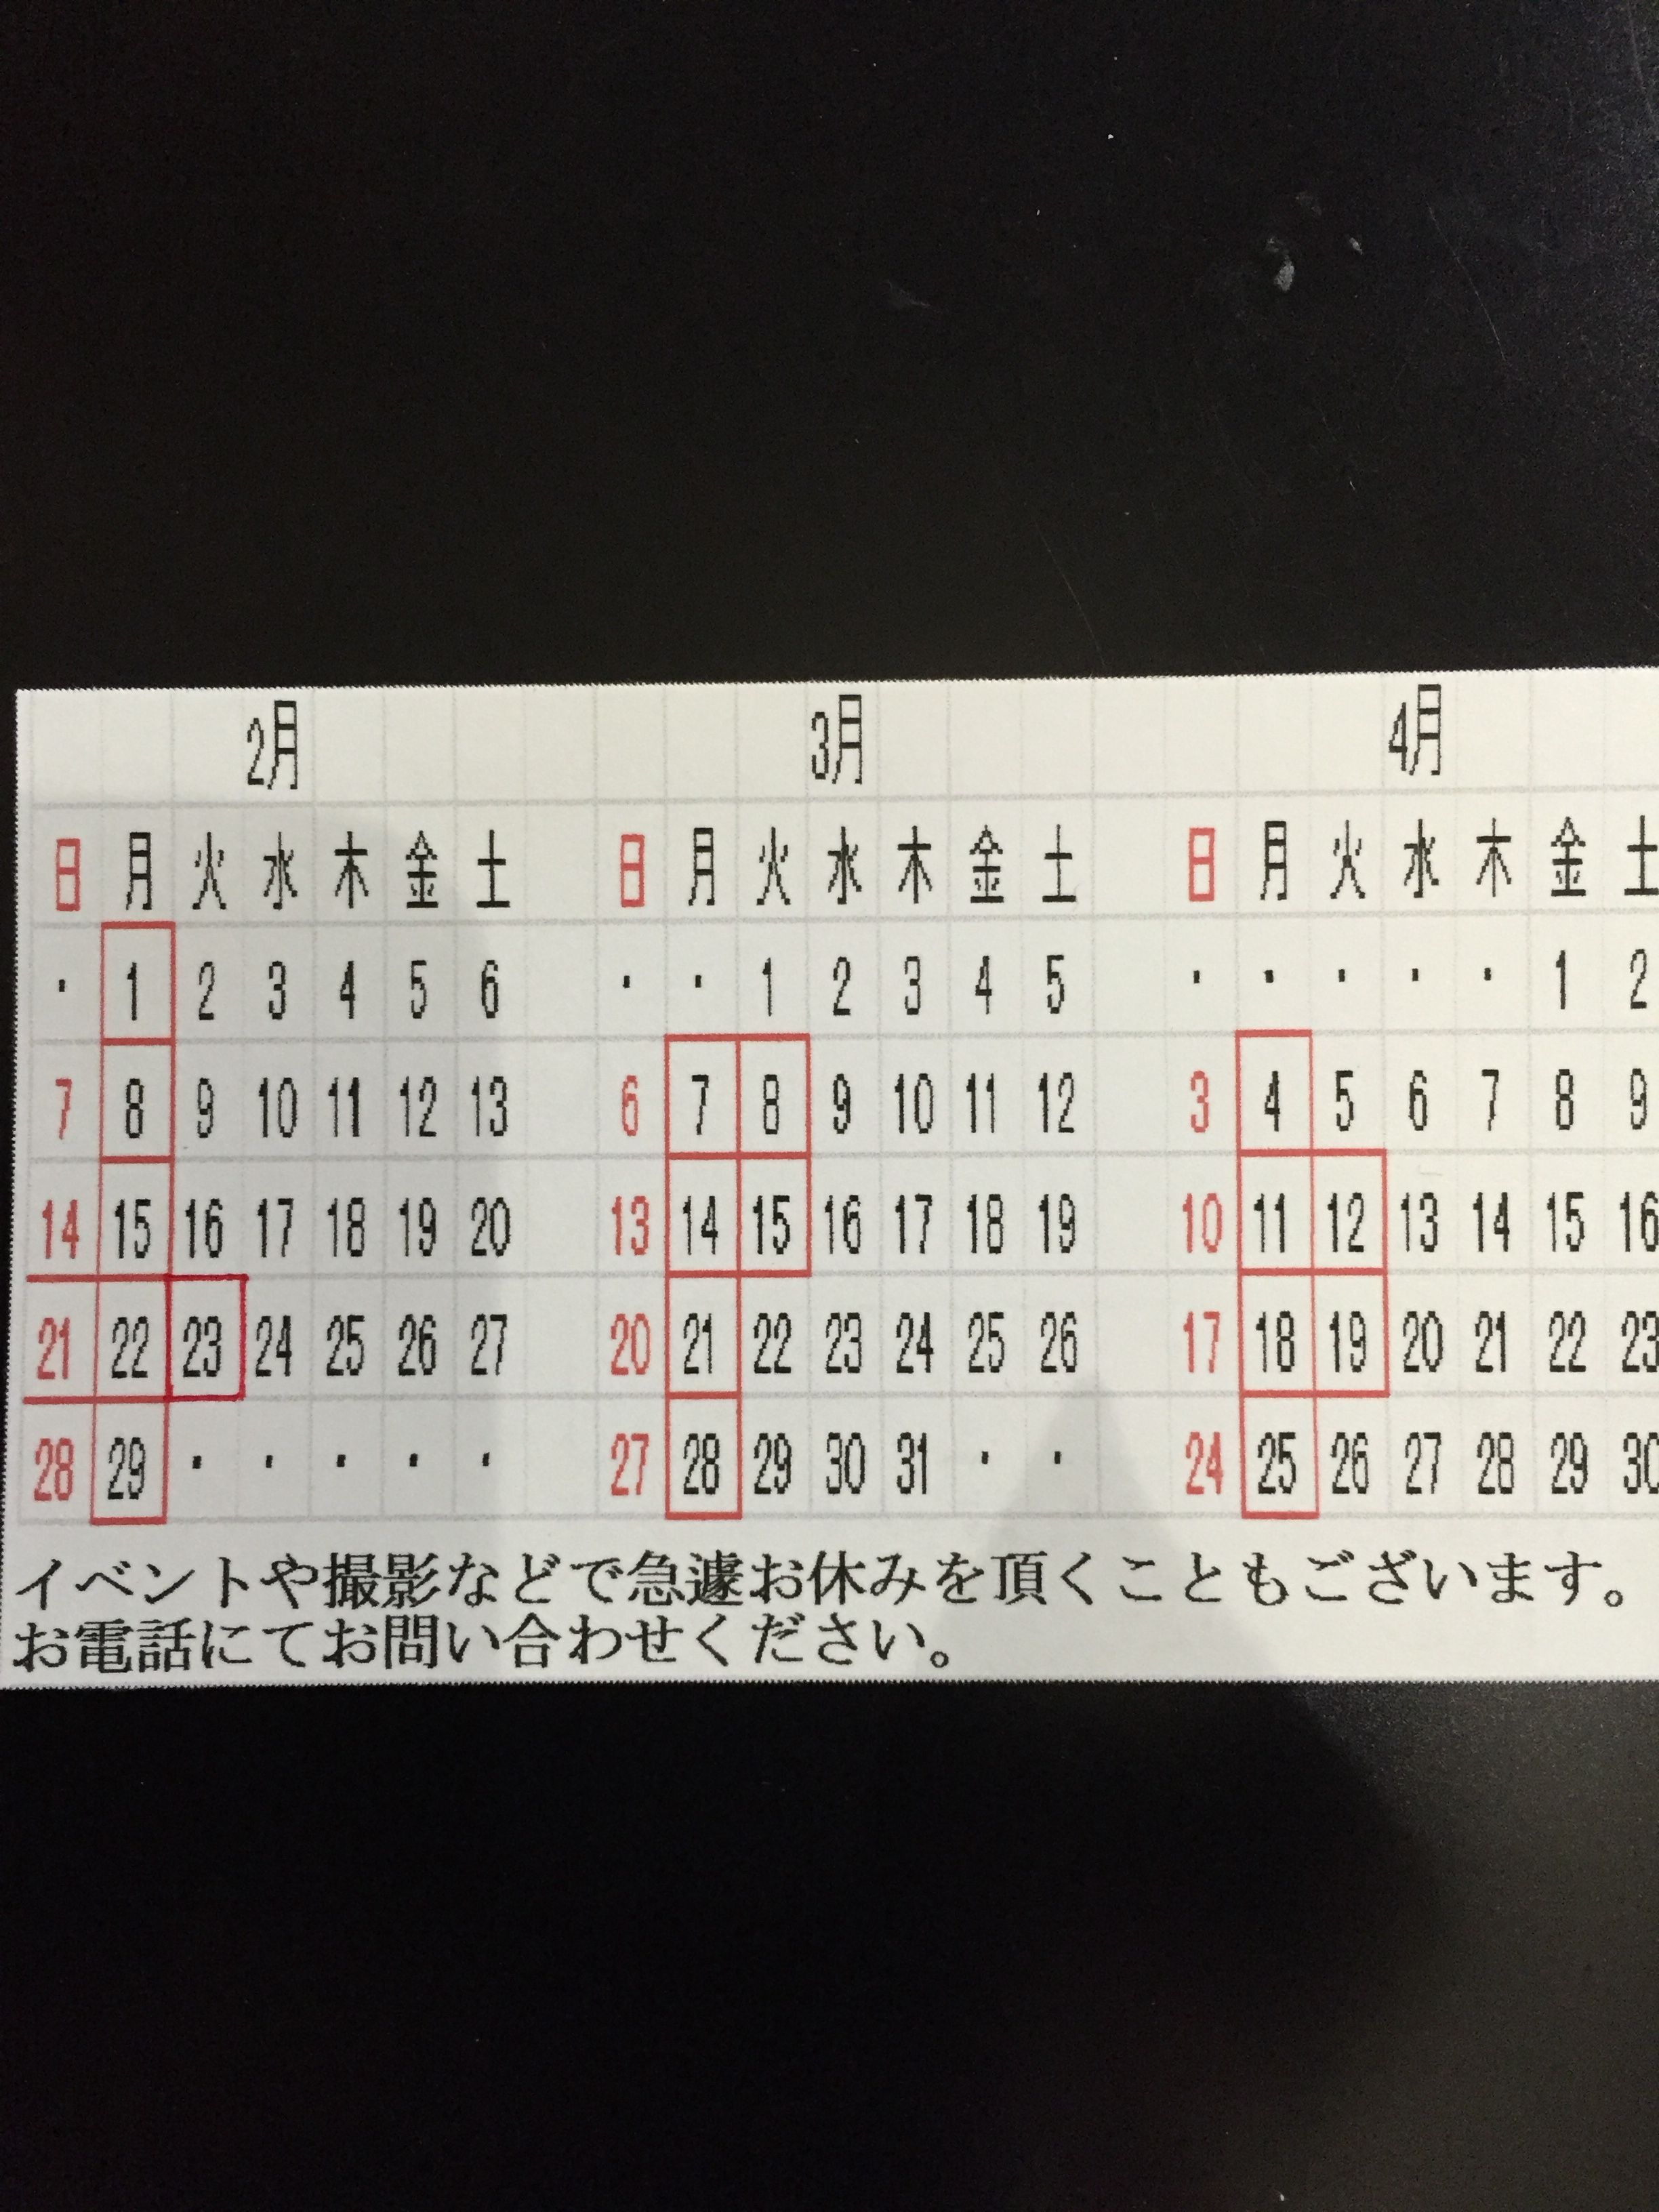 2月 3月 4月
日 月 火 水 木 金 土 日 月 火 水 木 金 土 日 月 火 水 木 金 土
・ 1 2 3 4 5 6 ・ ・ 1 2 3 4 5 ・ ・ ・ ・ ・ 1 2
7 8 9 10 11 12 13 6 7 8 9 10 11 12 3 4 5 6 7 8 9
14 15 16 17 18 19 20 13 14 15 16 17 18 19 10 11 12 13 14 15 16
21 22 23 24 25 26 27 20 21 22 23 24 25 26 17 18 19 20 21 22 23
28 29 ・ ・ ・ ・ ・ 27 28 29 30 31 ・ ・ 24 25 26 27 28 29 30
イベントや撮影などで急遽お休みを頂くこともございます。
お電話にてお問い合わせください。